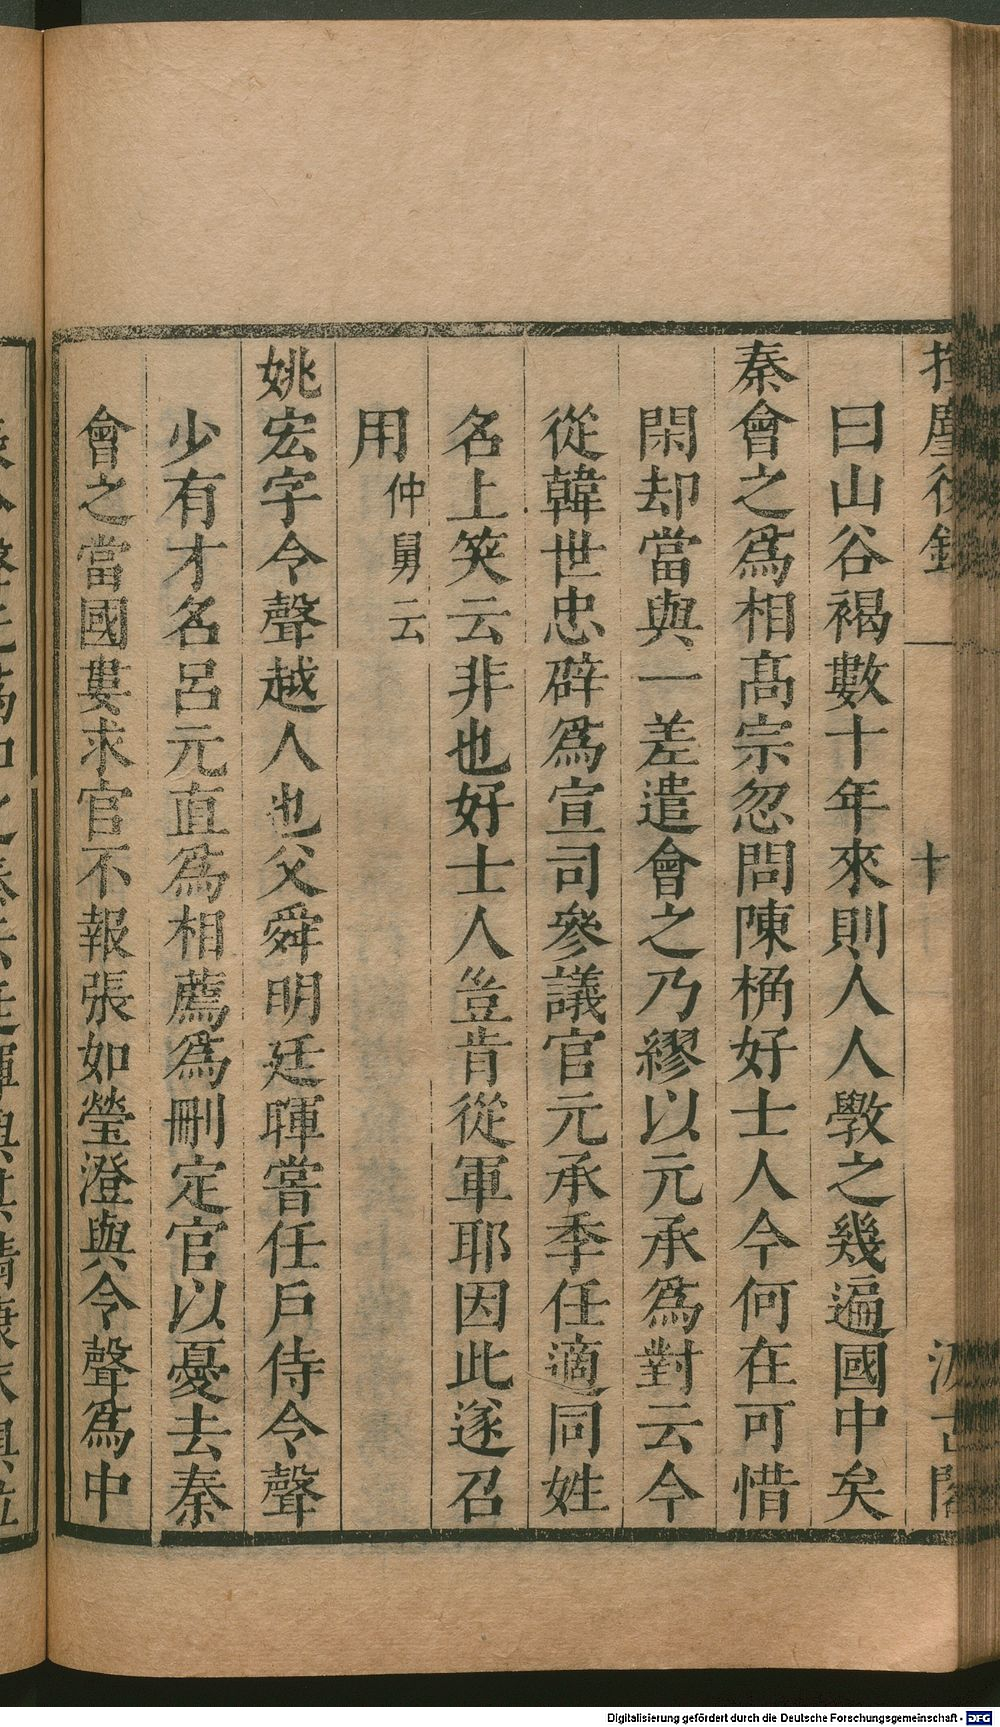 揮麈後錄 十 汲古閣
曰山谷褐數十年來則人人斆之幾遍國中矣
秦會之爲相高宗忽問陳桷好士人今何在可惜
閑却當與一差遣會之乃繆以元承爲對云今
從韓世忠辟爲宣司參議官元承季任適同姓
名上笑云非也好士人豈肯從軍耶因此遂召
用仲舅云
姚宏字令聲越人也父舜明廷暉嘗任戶侍令聲
少有才名呂元直爲相薦爲刪定官以憂去秦
會之當國婁求官不報張如瑩澄與令聲爲中
Digitalisierung gefördert durch die Deutsche Forschungsgemeinschaft - DFG